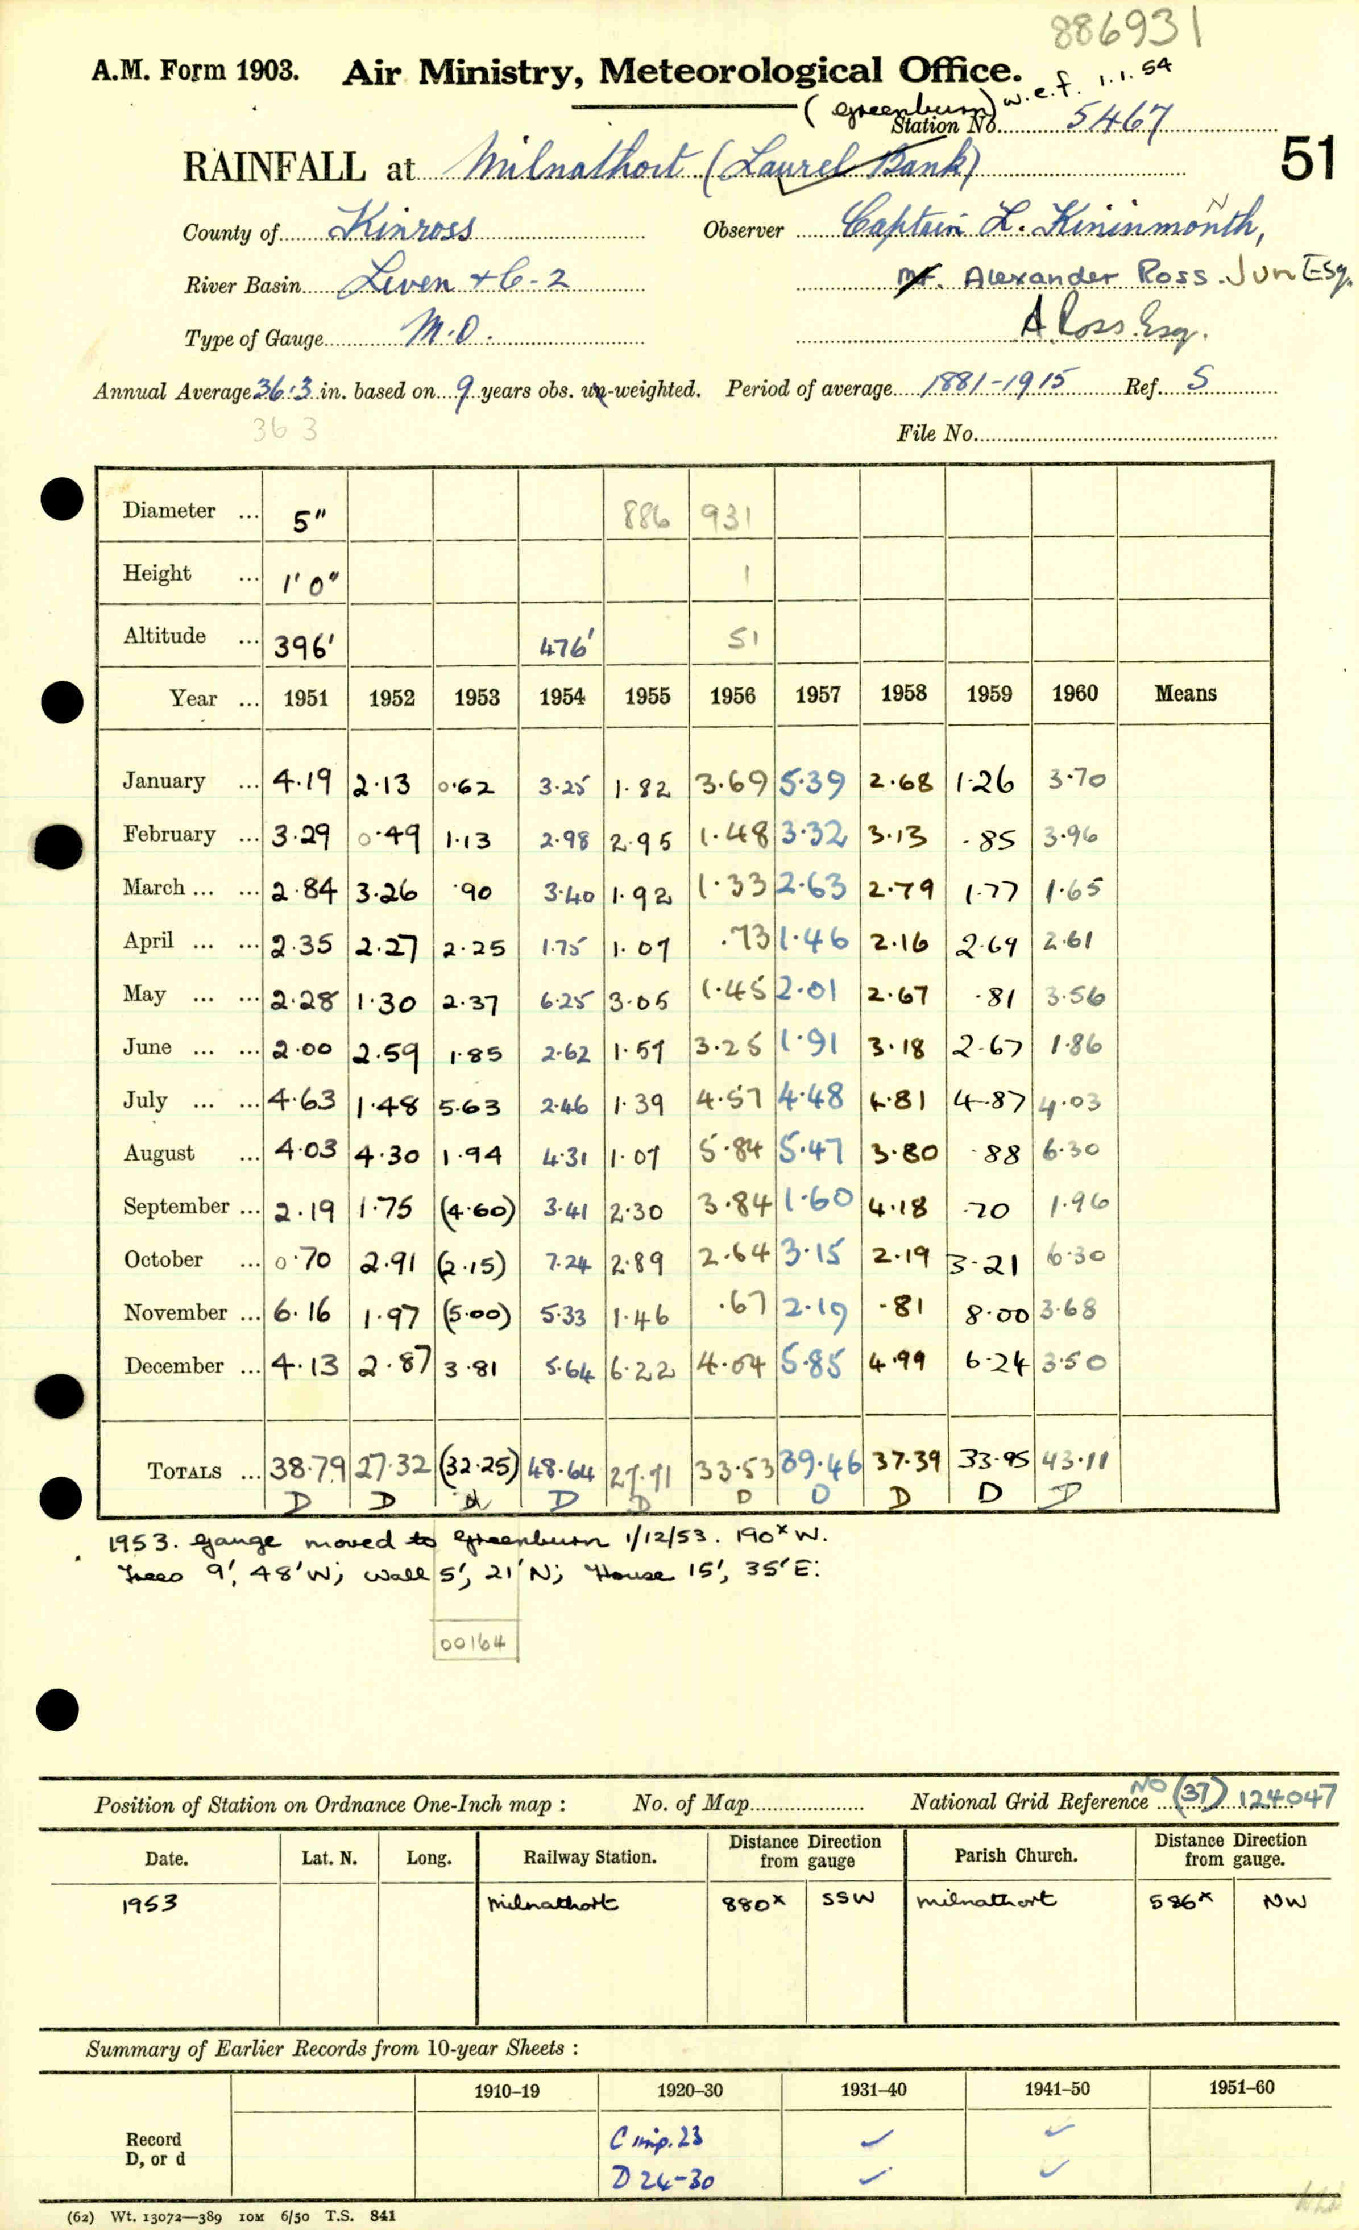 886931
A.M. Form 1903. Air Ministry, Meteorological Office.
(Greenburn) w.e.f. 1.1.54
Station No. 5467
RAINFALL at Milnathort (Laurel Bank) 51
County of Kinross Observer Captain L. Kininmonth,
N
River Basin Leven + C-2 Mr. Alexander Ross. Jun Esq.
Type of Gauge M.O. A Ross. Esq.
Annual Average 36.3 in. based on 9 years obs. un-weighted. Period of average 1881-1915 Ref. S
36 3
File No.
Diameter ... 5" 886 931
Height ... 1' 0" 1
Altitude ... 396' 476' 51
Year ... 1951 1952 1953 1954 1955 1956 1957 1958 1959 1960 Means
January ... 4.19 2.13 0.62 3.25 1.82 3.69 5.39 2.68 1.26 3.70
February ... 3.29 0.49 1.13 2.98 2.95 1.48 3.32 3.13 .85 3.96
March ... ... 2.84 3.26 .90 3.40 1.92 1.33 2.63 2.79 1.77 1.65
April ... ... 2.35 2.27 2.25 1.75 1.07 .73 1.46 2.16 2.69 2.61
May ... ... 2.28 1.30 2.37 6.25 3.05 1.45 2.01 2.67 .81 3.56
June ... ... 2.00 2.59 1.85 2.62 1.57 3.25 1.91 3.18 2.67 1.86
July ... ... 4.63 1.48 5.63 2.46 1.39 4.57 4.48 4.81 4.87 4.03
August ... 4.03 4.30 1.94 4.31 1.07 5.84 5.47 3.80 .88 6.30
September ... 2.19 1.75 (4.60) 3.41 2.30 3.84 1.60 4.18 .70 1.96
October ... 0.70 2.91 (2.15) 7.24 2.89 2.64 3.15 2.19 3.21 6.30
November ... 6.16 1.97 (5.00) 5.33 1.46 .67 2.19 .81 8.00 3.68
December ... 4.13 2.87 3.81 5.64 6.22 4.04 5.85 4.99 6.24 3.50
TOTALS ... 38.79 27.32 (32.25) 48.64 27.71 33.53 39.46 37.39 33.95 43.11
D D d D D D D D D D
1953. Gauge moved to Greenburn 1/12/53. 190x W.
Trees 9', 48' W; Wall 5', 21' N; House 15', 35' E:
00164
Position of Station on Ordnance One-Inch map : No. of Map National Grid Reference NO (37) 124047
Date. Lat. N. Long. Railway Station. Distance Direction from gauge Parish Church. Distance Direction from gauge.
1953 Milnathort 880x SSW Milnathort 586x NW
Summary of Earlier Records from 10-year Sheets :
1910–19 1920–30 1931–40 1941–50 1951–60
Record C imp. 23 ✓ ✓
D, or d D 24-30 ✓ ✓
(62) Wt. 13072—389 10M 6/50 T.S. 841